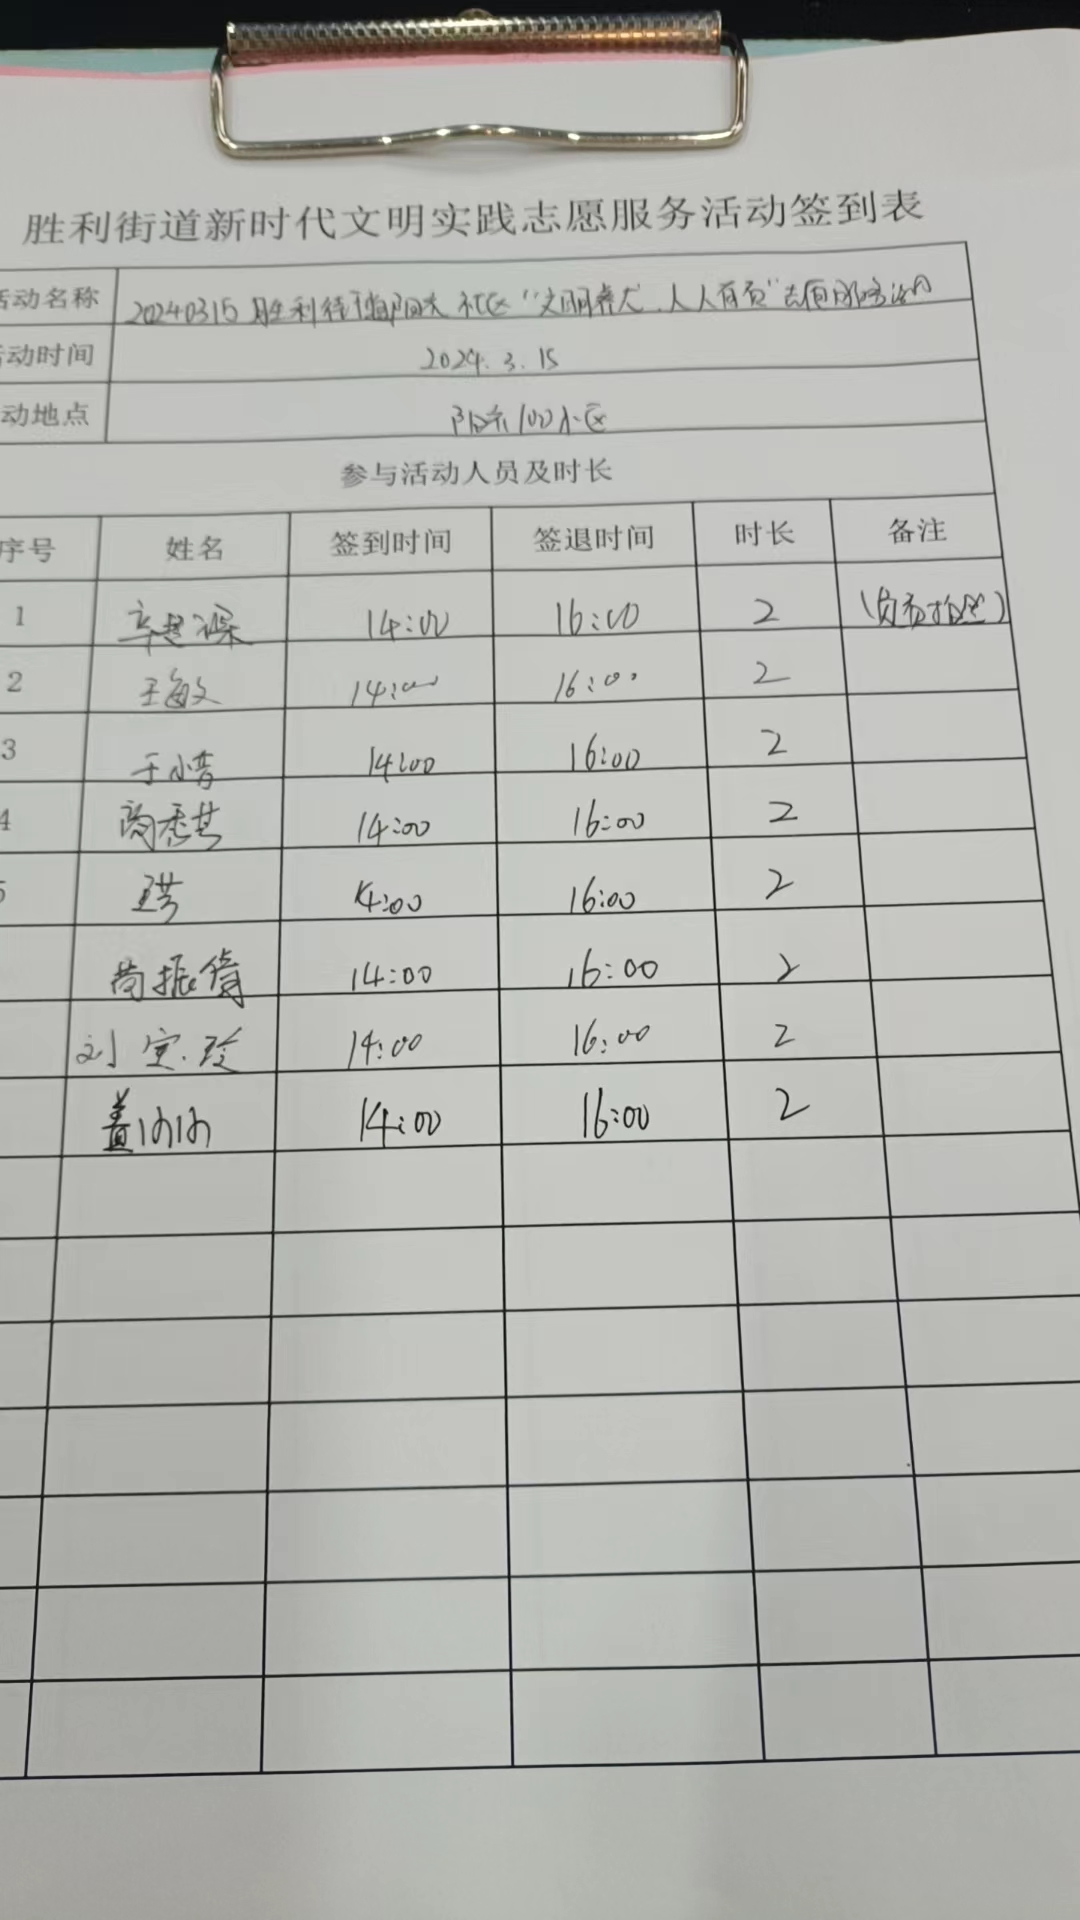 胜利街道新时代文明实践志愿服务活动签到表
活动名称 20240315胜利街道阳光社区“文明养犬,人人有责”志愿服务活动
动时间 2024.3.15
动地点 阳光100小区
参与活动人员及时长
序号 姓名 签到时间 签退时间 时长 备注
1 14:00 16:00 2 (负责拍照)
2 王海文 14:00 16:00 2
3 于小雪 14:00 16:00 2
4 14:00 16:00 2
5 14:00 16:00 2
尚振倩 14:00 16:00 2
刘宝珍 14:00 16:00 2
盖 14:00 16:00 2